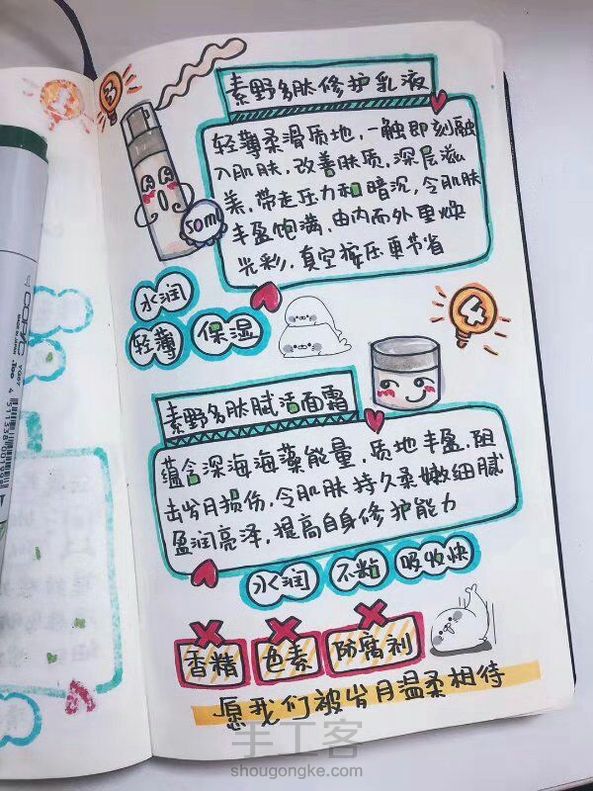 3
素野多肽修护乳液
轻薄柔滑质地,一触即刻融
入肌肤,改善肤质,深层滋
美,带走压力和暗沉,令肌肤
丰盈饱满,由内而外更焕
光彩,真空按压更节省
50ml
水润
轻薄 保湿
4
素野多肽赋活面霜
蕴含深海海藻能量,质地丰盈,阻
击岁月损伤,令肌肤持久柔嫩细腻
盈润亮泽,提高自身修护能力
水润 不黏 吸收快
香精 色素 防腐剂
愿我们被岁月温柔相待
COPIC
手工客
shougongke.com